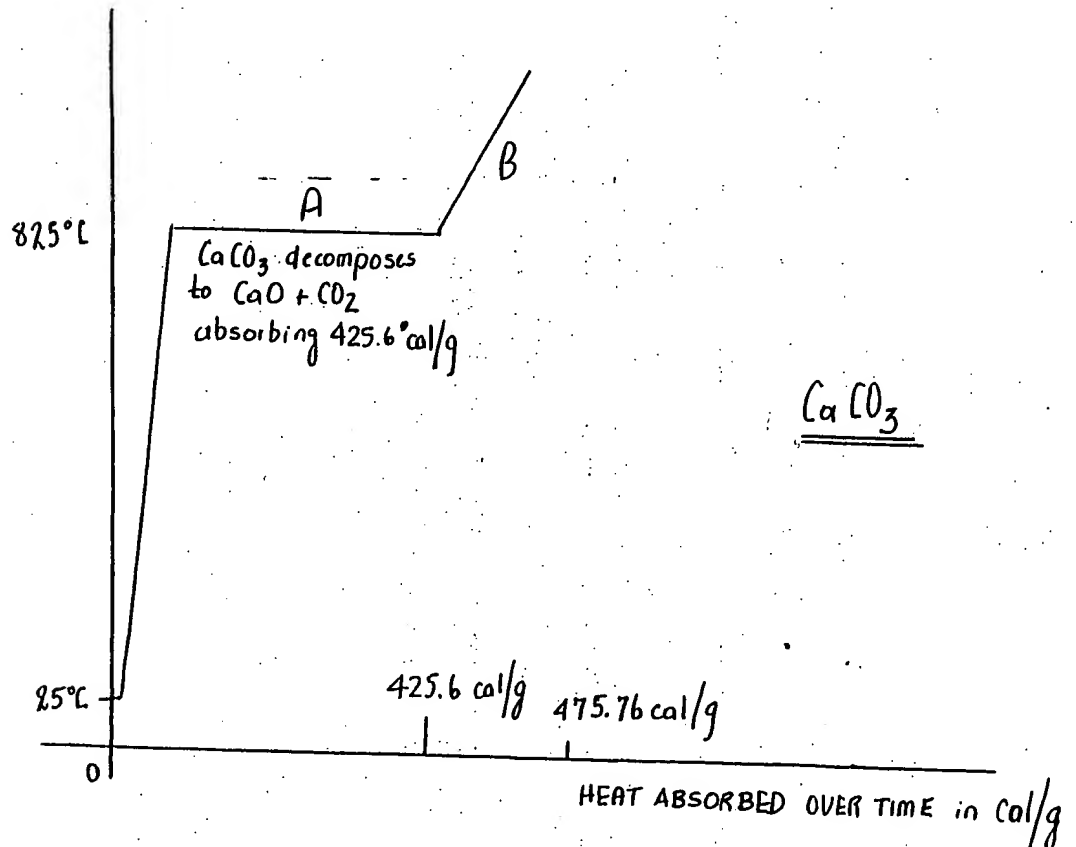 B
A
825°C
CaCO₃ decomposes
to CaO + CO₂
absorbing 425.6 cal/g
CaCO₃
25°C
425.6 cal/g
475.76 cal/g
0
HEAT ABSORBED OVER TIME in Cal/g